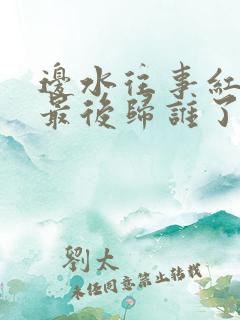 邊水往事紅
最後歸誰了
劉太
未經同意禁止轉載